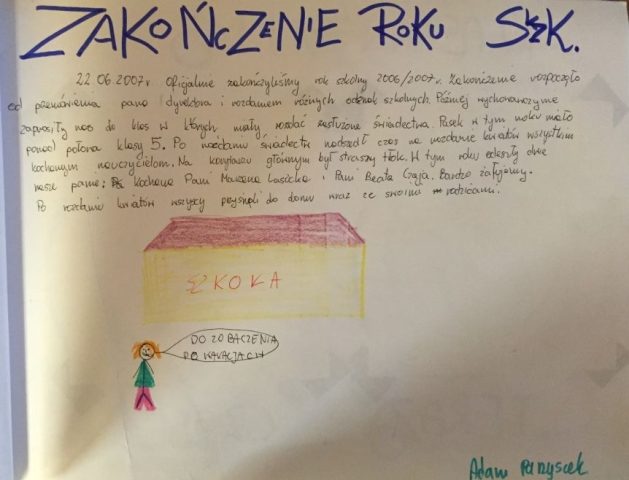 ZAKOŃCZENIE ROKU SZK.
22.06.2007r Oficjalnie zakończyliśmy rok szkolny 2006/2007r. Zakończenie rozpoczęło
od przemówienia pana dyrektora i rozdaniem różnych odznak szkolnych. Później wychowawczynie
zaprosiły nas do klas w których miały rozdać zasłużone świadectwa. Pasek w tym roku miało
ponad połowa klasy 5. Po rozdaniu świadectw nadszedł czas na rozdanie kwiatów wszystkim
kochanym nauczycielom. Na korytarzu głównym był straszny tłok. W tym roku odeszły dwie
nasze panie: Kochana Pani Marzena Lasicka i Pani Beata Czaja. Bardzo żałujemy.
Po rozdaniu kwiatów wszyscy poszli do domu wraz ze swoimi rodzicami.
SZKOŁA
DO ZOBACZENIA
PO WAKACJACH
Adam